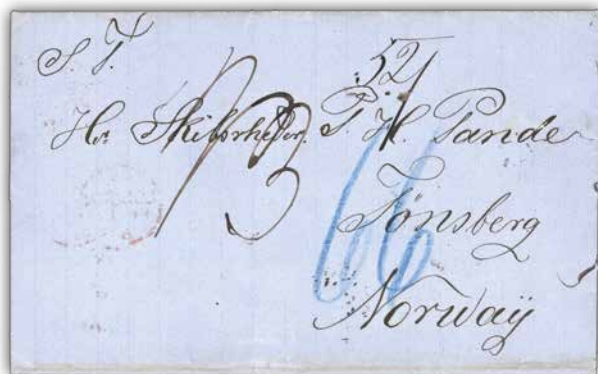 S. T.
52
Hr Skibsrheder. P. H. Pande
66
Tönsberg
Norwaÿ